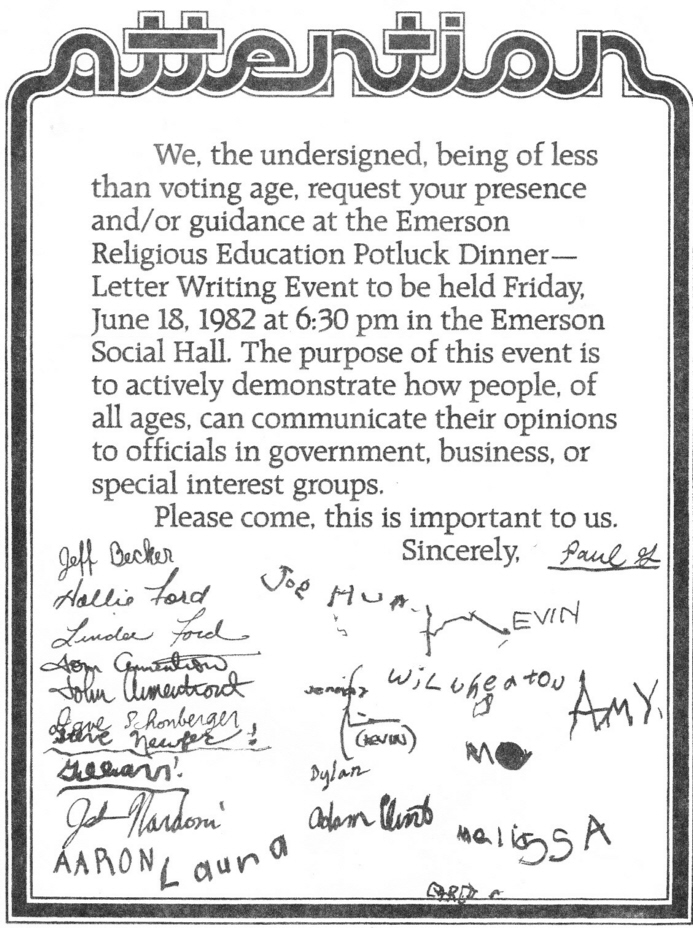 attention
We, the undersigned, being of less
than voting age, request your presence
and/or guidance at the Emerson
Religious Education Potluck Dinner—
Letter Writing Event to be held Friday,
June 18, 1982 at 6:30 pm in the Emerson
Social Hall. The purpose of this event is
to actively demonstrate how people, of
all ages, can communicate their opinions
to officials in government, business, or
special interest groups.
Please come, this is important to us.
Sincerely, Paul
Jeff Becker
Hollie Ford
Linda Ford
John Armentrout
Dave Schonberger
Joe
EVIN
(KEVIN)
AMY
Dylan
Adam
AARON
Launa
MelissA